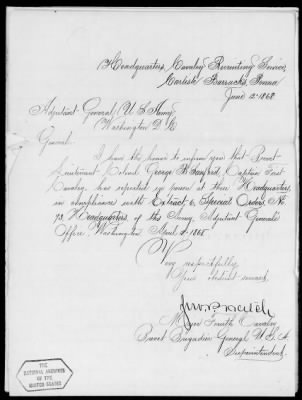 Headquarters, Cavalry Recruiting Service,
Carlisle Barracks, Penna
June 12 1868
Adjutant General U S Army
Washington D.C.
General:
I have the honor to inform you that Brevet
Lieutenant Colonel George B. Sanford, Captain First
Cavalry, has reported in person at these Headquarters,
in compliance with Extract, 6, Special Orders, No
73, Headquarters of the Army, Adjutant General's
Office, Washington 1868
Very respectfully
Your obedient servant
Major Fourth Cavalry
Brevet Brigadier General U S A
Superintendent
THE
NATIONAL ARCHIVES
OF THE
UNITED STATES